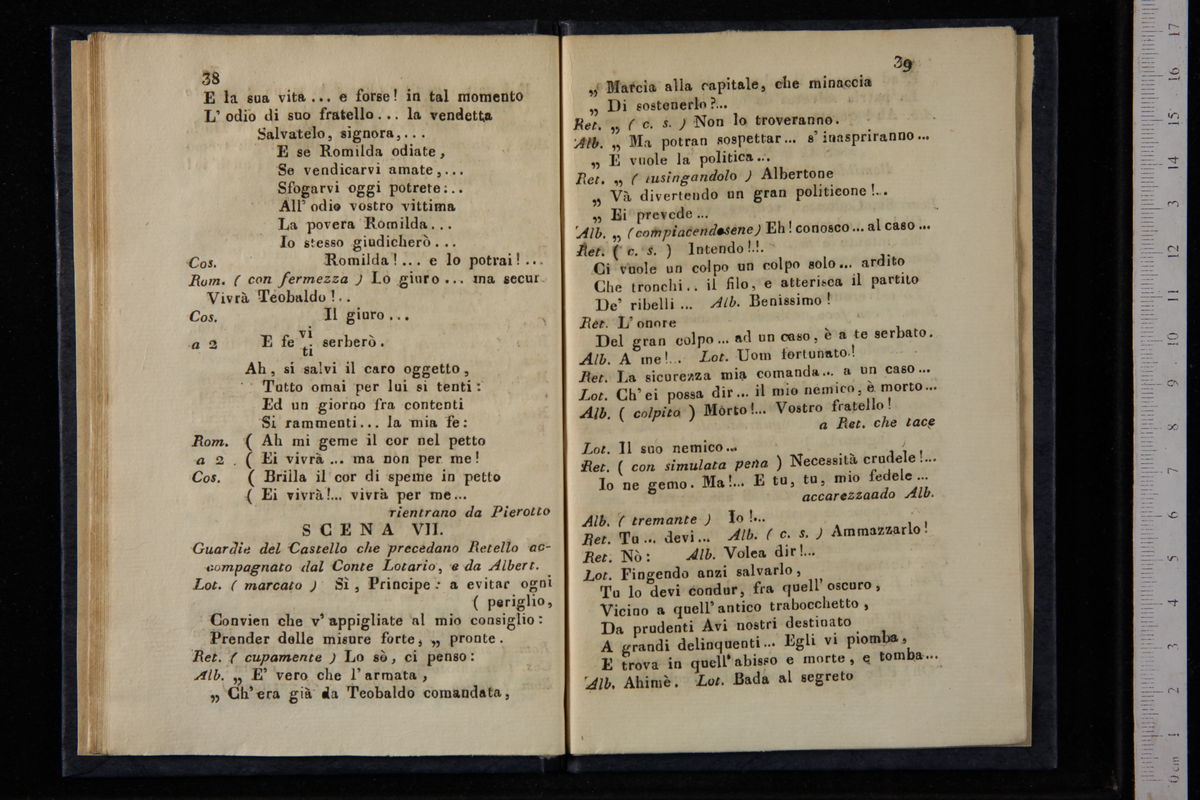 38
E la sua vita ... e forse! in tal momento
L' odio di suo fratello... la vendetta
Salvatelo, signora,...
E se Romilda odiate,
Se vendicarvi amate,...
Sfogarvi oggi potrete:..
All' odio vostro vittima
La povera Romilda...
Io stesso giudicherò...
Cos. Romilda!... e lo potrai!...
Rom. ( con fermezza ) Lo giuro... ma secur
Vivrà Teobaldo!..
Cos. Il giuro...
a 2 E fe vi ti serberò.
Ah, si salvi il caro oggetto,
Tutto omai per lui si tenti:
Ed un giorno fra contenti
Si rammenti... la mia fe:
Rom. ( Ah mi geme il cor nel petto
a 2. ( Ei vivrà ... ma non per me!
Cos. ( Brilla il cor di speme in petto
( Ei vivrà!... vivrà per me...
rientrano da Pierotto
SCENA VII.
Guardie del Castello che precedano Retello ac-
compagnato dal Conte Lotario, e da Albert.
Lot. ( marcato ) Sì, Principe: a evitar ogni
( periglio,
Convien che v' appigliate al mio consiglio:
Prender delle misure forte, „ pronte.
Ret. ( cupamente ) Lo sò, ci penso:
Alb. „ E' vero che l'armata,
„ Ch' era già da Teobaldo comandata,
39
„ Marcia alla capitale, che minaccia
„ Di sostenerlo?...
Ret. „ ( c. s. ) Non lo troveranno.
Alb. „ Ma potran sospettar... s' inaspriranno...
„ E vuole la politica...
Ret. „ ( lusingandolo ) Albertone
„ Và divertendo un gran politicone!..
„ Ei prevede...
Alb. „ (compiacendosene) Eh! conosco... al caso...
Ret. ( c. s. ) Intendo!.!.
Ci vuole un colpo un colpo solo... ardito
Che tronchi.. il filo, e atterisca il partito
De' ribelli... Alb. Benissimo!
Ret. L' onore
Del gran colpo... ad un caso, è a te serbato.
Alb. A me!.. Lot. Uom fortunato!
Ret. La sicurezza mia comanda... a un caso...
Lot. Ch' ei possa dir... il mio nemico, è morto...
Alb. ( colpito ) Morto!... Vostro fratello!
a Ret. che tace
Lot. Il suo nemico...
Ret. ( con simulata pena ) Necessità crudele!...
Io ne gemo. Ma!... E tu, tu, mio fedele...
accarezzaado Alb.
Alb. ( tremante ) Io!...
Ret. Tu... devi... Alb. ( c. s. ) Ammazzarlo!
Ret. Nò: Alb. Volea dir!...
Lot. Fingendo anzi salvarlo,
Tu lo devi condur, fra quell' oscuro,
Vicino a quell' antico trabocchetto,
Da prudenti Avi nostri destinato
A grandi delinquenti... Egli vi piomba,
E trova in quell' abisso e morte, e tomba...
Alb. Ahimè. Lot. Bada al segreto
0 cm 1 2 3 4 5 6 7 8 9 10 11 12 13 14 15 16 17